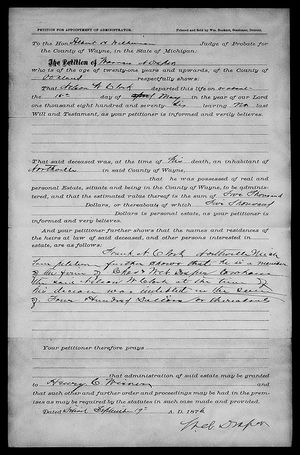 PETITION FOR APPOINTMENT OF ADMINISTRATOR.
To the Hon. Judge of Probate for
the County of Wayne, in the State of Michigan.
The Petition of
who is of the age of twenty-one years and upwards, of the County of
Oakland respectfully shows:
That Nelson W. Clark departed this life on or about
the day of May in the year of our Lord
one thousand eight hundred and seventy six leaving no last
Will and Testament, as your petitioner is informed and verily believes.
That said deceased was, at the time of his death, an inhabitant of
Northville in said County of Wayne,
that he was possessed of real and
personal Estate, situate and being in the County of Wayne, to be adminis-
tered, and that the estimated value thereof is the sum of Five Thousand
Dollars, or thereabouts, of which Five Thousand
Dollars is personal estate, as your petitioner is
informed and verily believes.
And your petitioner further shows that the names and residences of
the heirs at law of said deceased, and other persons interested in
estate, are as follows:
Frank N. Clark Northville Mich
petition further shows that he is a member
of the firm of
the said Nelson W. Clark at the time of
his decease was indebted in the sum
of Four Hundred Dollars or thereabouts
Your petitioner therefore prays
that administration of said estate may be granted
to Henry C. and
that such other and further order and proceedings may be had in the prem-
ises as may be required by the statutes in such case made and provided.
Dated, September A. D. 1876